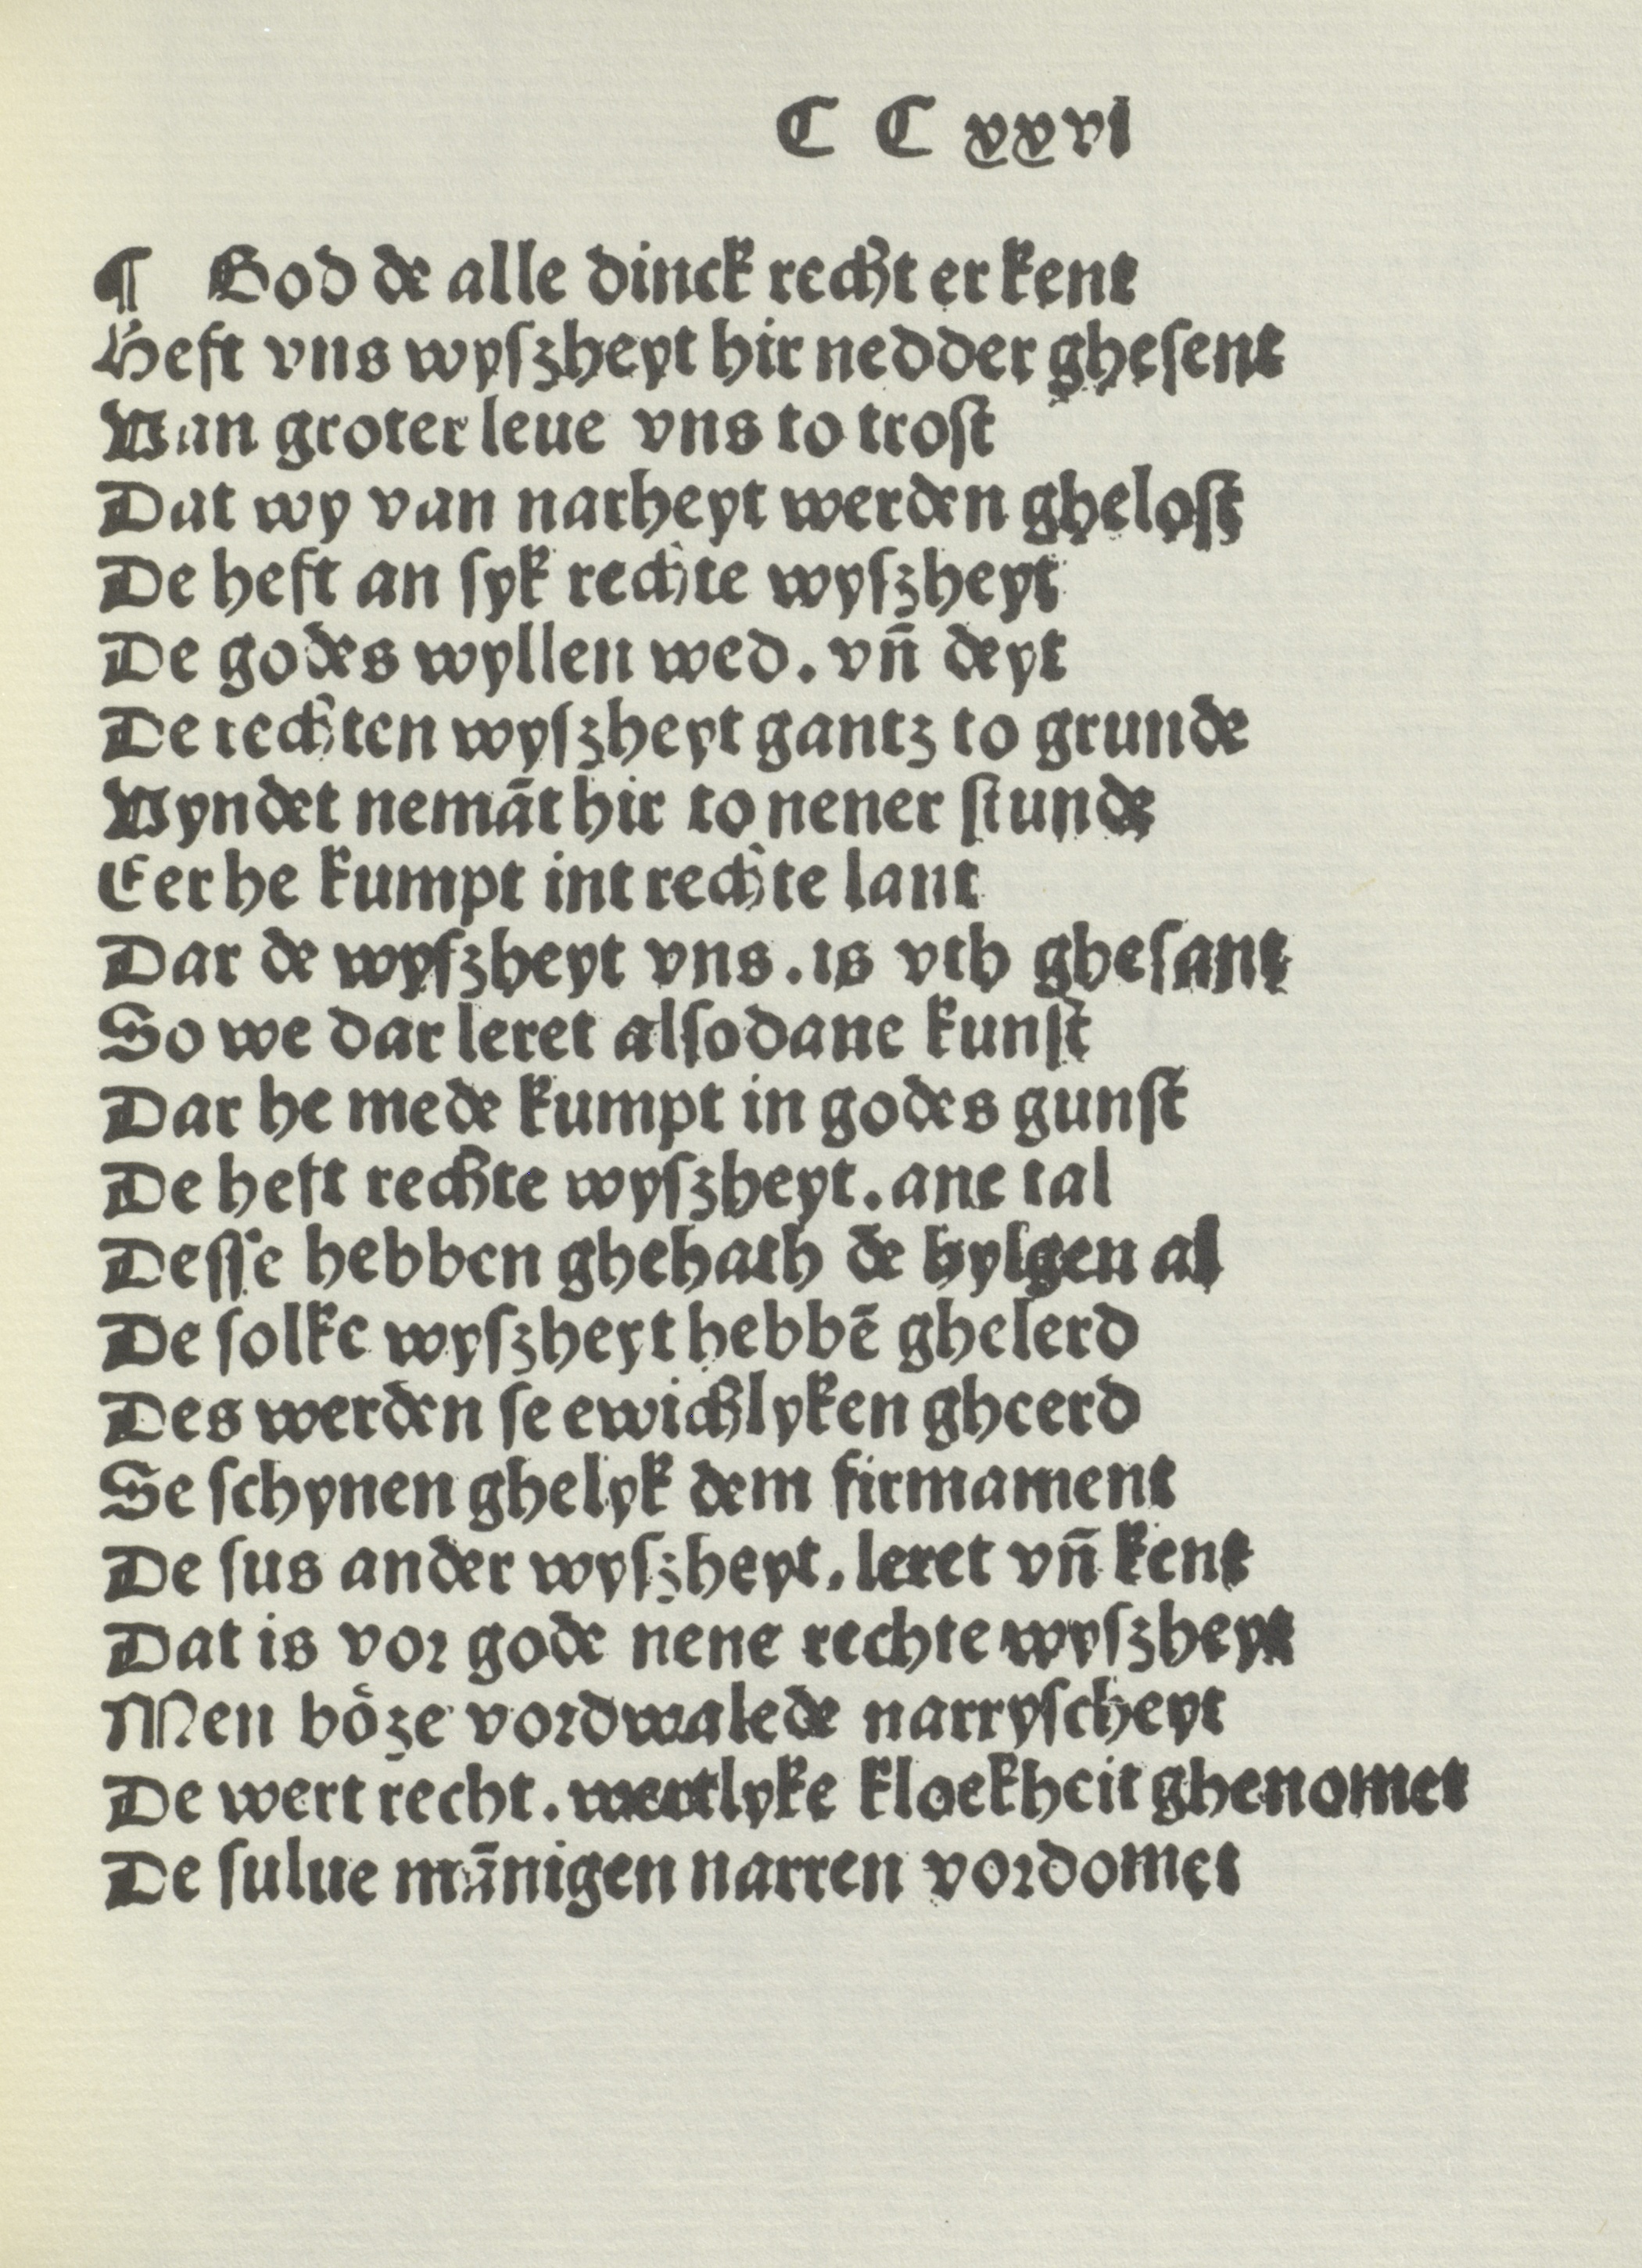 C C xxvi
¶ God de alle dinck recht er kent
Heft vns wyſzheyt hir nedder gheſent
Van groter leue vns to troſt
Dat wy van narheyt werden gheloſt
De heft an ſyk rechte wyſzheyt
De godes wyllen wed. vn̄ deyt
De rechten wyſzheyt gantz to grunde
Vyndet nemāt hir to nener ſtunde
Eer he kumpt int rechte lant
Dar de wyſzheyt vns. is vth gheſant
So we dar leret alſodane kunſt
Dar he mede kumpt in godes gunſt
De heft rechte wyſzheyt. ane tal
Deſſe hebben ghehath de hylgen al
De ſolke wyſzheyt hebbē ghelerd
Des werden ſe ewichlyken gheerd
Se ſchynen ghelyk dem firmament
De ſus ander wyſzheyt. leret vn̄ kent
Dat is voꝛ gode nene rechte wyſzheyt
Men boͤze voꝛdwalede narryſcheyt
De wert recht. wertlyke kloekheit ghenomet
De ſulue mānigen narren voꝛdomet